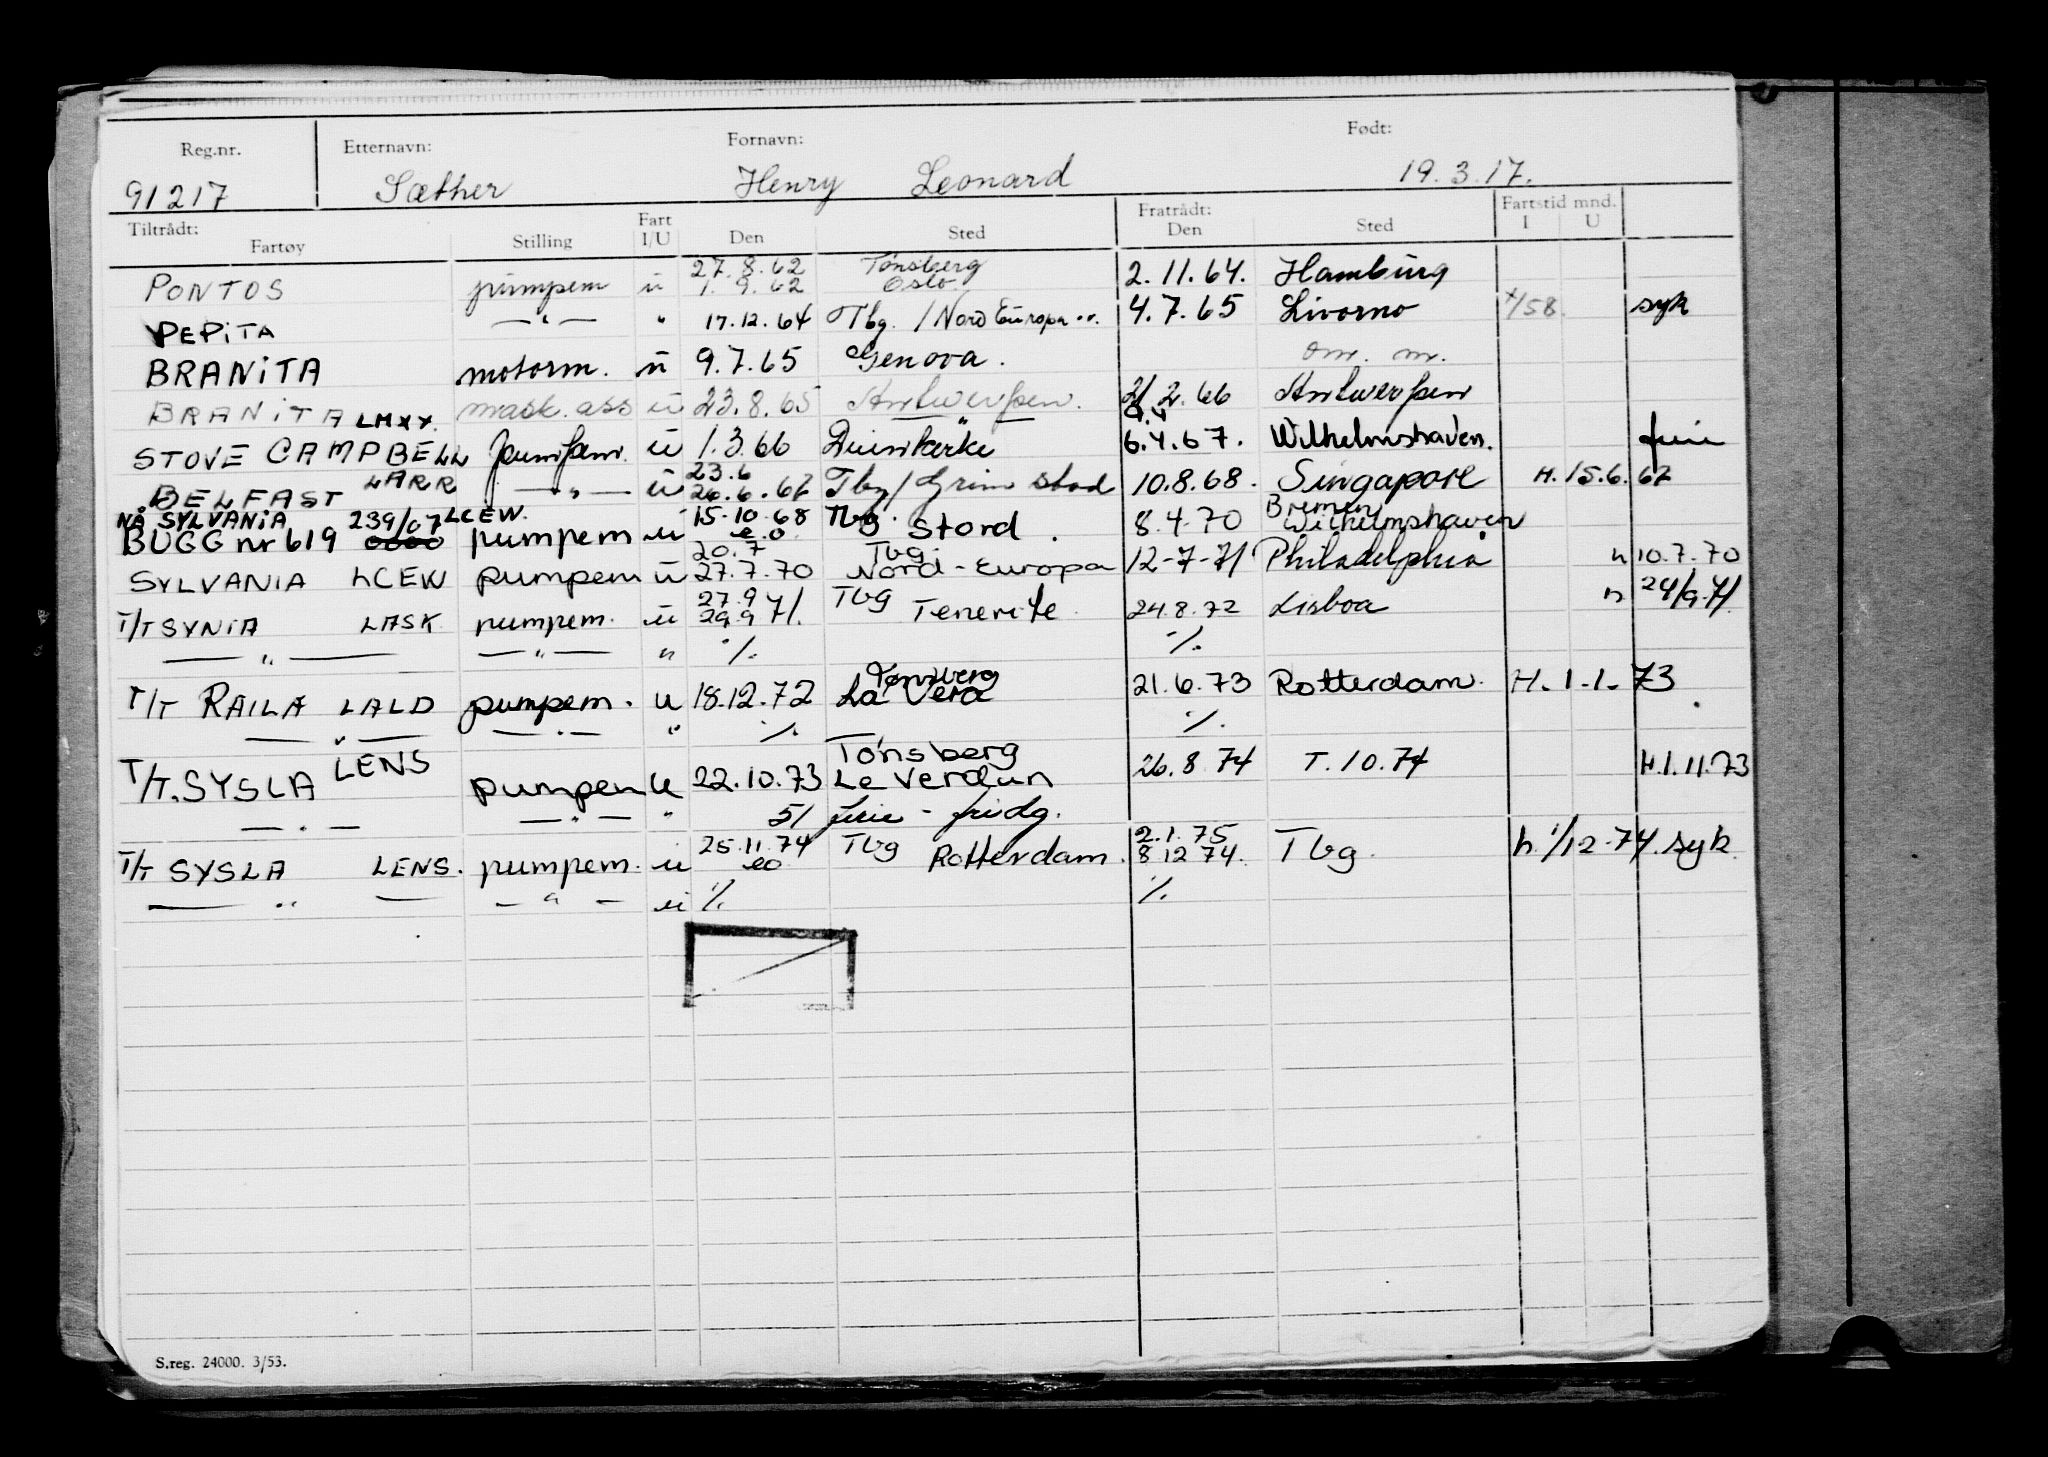 Reg.nr. Etternavn: Fornavn: Født:
91217 Sæther Henry Leonard 19.3.17.
Tiltrådt: Fartøy Stilling Fart I/U Den Sted Fratrådt: Den Sted Fartstid mnd. I U
27.8.62 Tønsberg
PONTOS pumpem u 1.9.62 Oslo 2.11.64. Hamburg
PEPITA —"— " 17.12.64 Tbg. / Nord Europa 4.7.65 Livorno /58 syk
BRANITA motorm. u 9.7.65 Genova. om. m.
BRANITA LMXX. mask. ass u 23.8.65 Antwerpen. 2/2.66 Antwerpen
STOVE CAMPBELL pumpem. u 1.3.66 Duinkerke 6.4.67. Wilhelmshaven. ferie
23.6
BELFAST LARR —"— u 26.6.67 Tbg/Grimstad 10.8.68. Singapore H. 15.6.67
NÅ SYLVANIA 239/07 LCEW. 15.10.68 Tbg. Bremen
BUGG nr 619 pumpem u e.o. Stord. 8.4.70 Wilhelmshaven
20.7 Tbg.
SYLVANIA LCEW pumpem u 27.7.70 Nord-Europa 12-7-71 Philadelphia h 10.7.70
27.9 Tbg
T/T SYNIA LASK pumpem. u 29.9 71. Tenerife 24.8.72 Lisboa h 24/9.71
—"— —"— " ./. ./.
Tønsberg
T/T RAILA LALD pumpem. u 18.12.72 La Vera 21.6.73 Rotterdam. H. 1-1-73
—"— —"— " ./. — ./.
Tønsberg
T/T. SYSLA LENS pumpem u 22.10.73 Le Verdun 26.8.74 T.10.74 H.1.11.73
—"— —"— " 51 ferie - fridg.
25.11.74 Tbg 2.1.75
T/T SYSLA LENS. pumpem. u eo Rotterdam. 8 12 74. Tbg. h. 1/12-74. syk.
—"— —"— u ./. ./.
S.reg. 24000. 3/53.